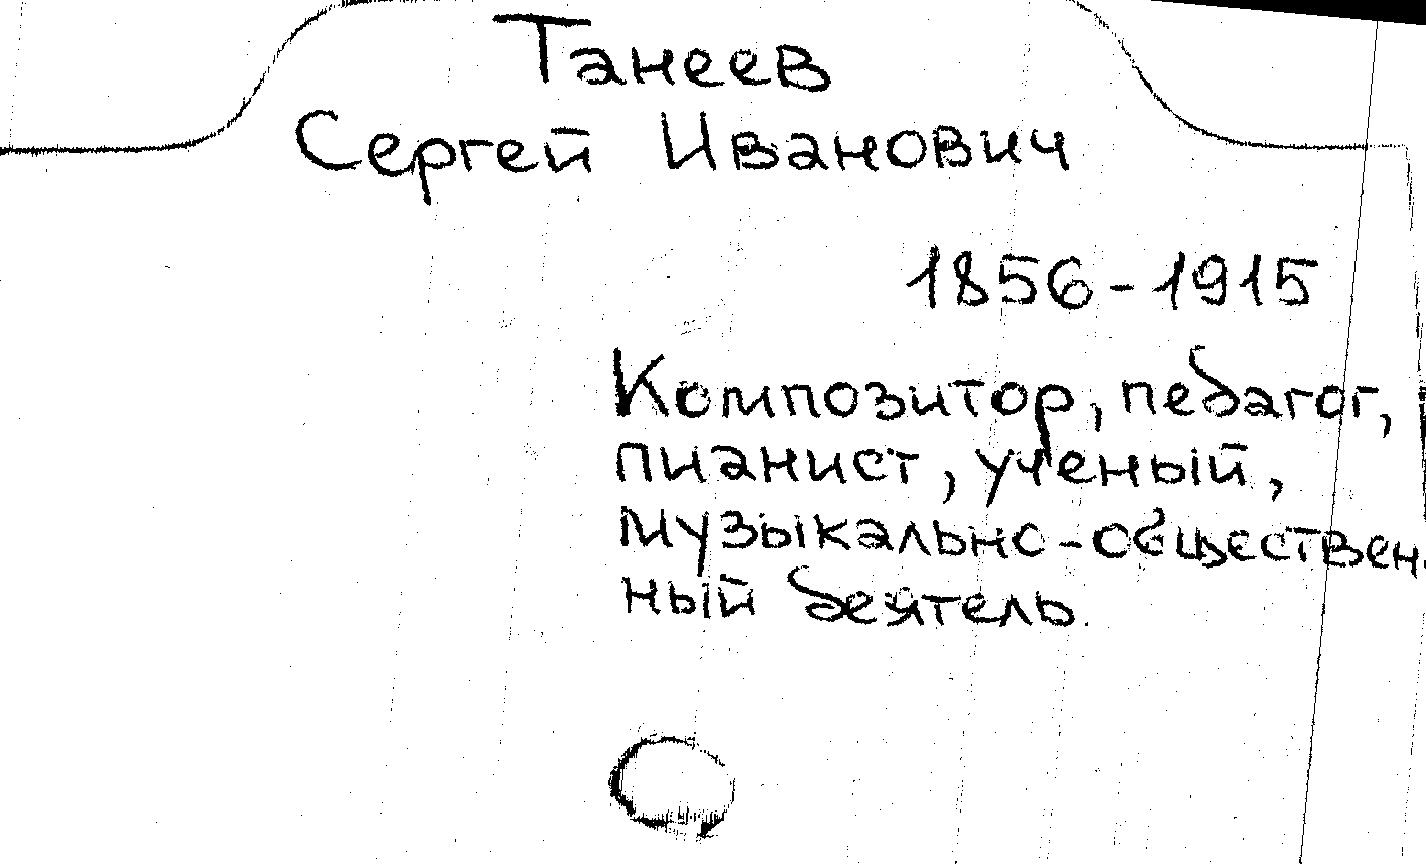 Танеев
Сергей Иванович
1856-1915
Композитор, педагог,
пианист, ученый,
музыкально-обществен-
ный деятель.